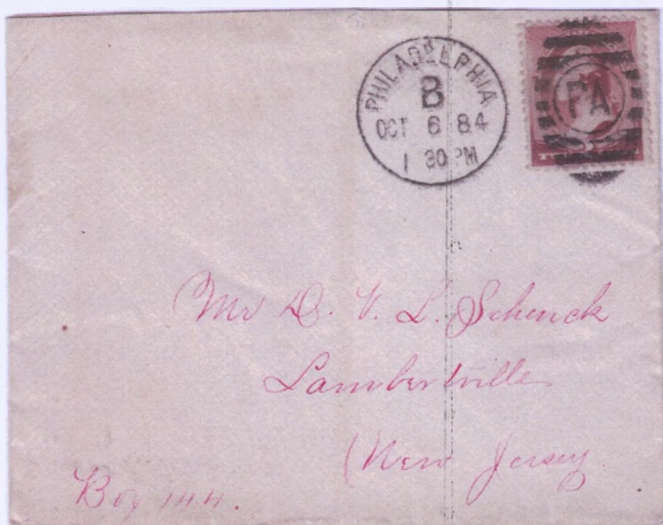 PHILADELPHIA
B
OCT 6 84
1 30 PM
PA
Mr D. V. L. Schenck
Lambertville
New Jersey
Box 144.